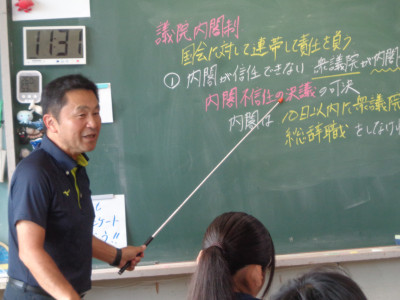 11:31
議院内閣制
国会に対して連帯して責任を負う
① 内閣が信任できない 衆議院が内閣
内閣不信任の決議の可決
内閣は 10日以内に衆議院
総辞職をしなけ